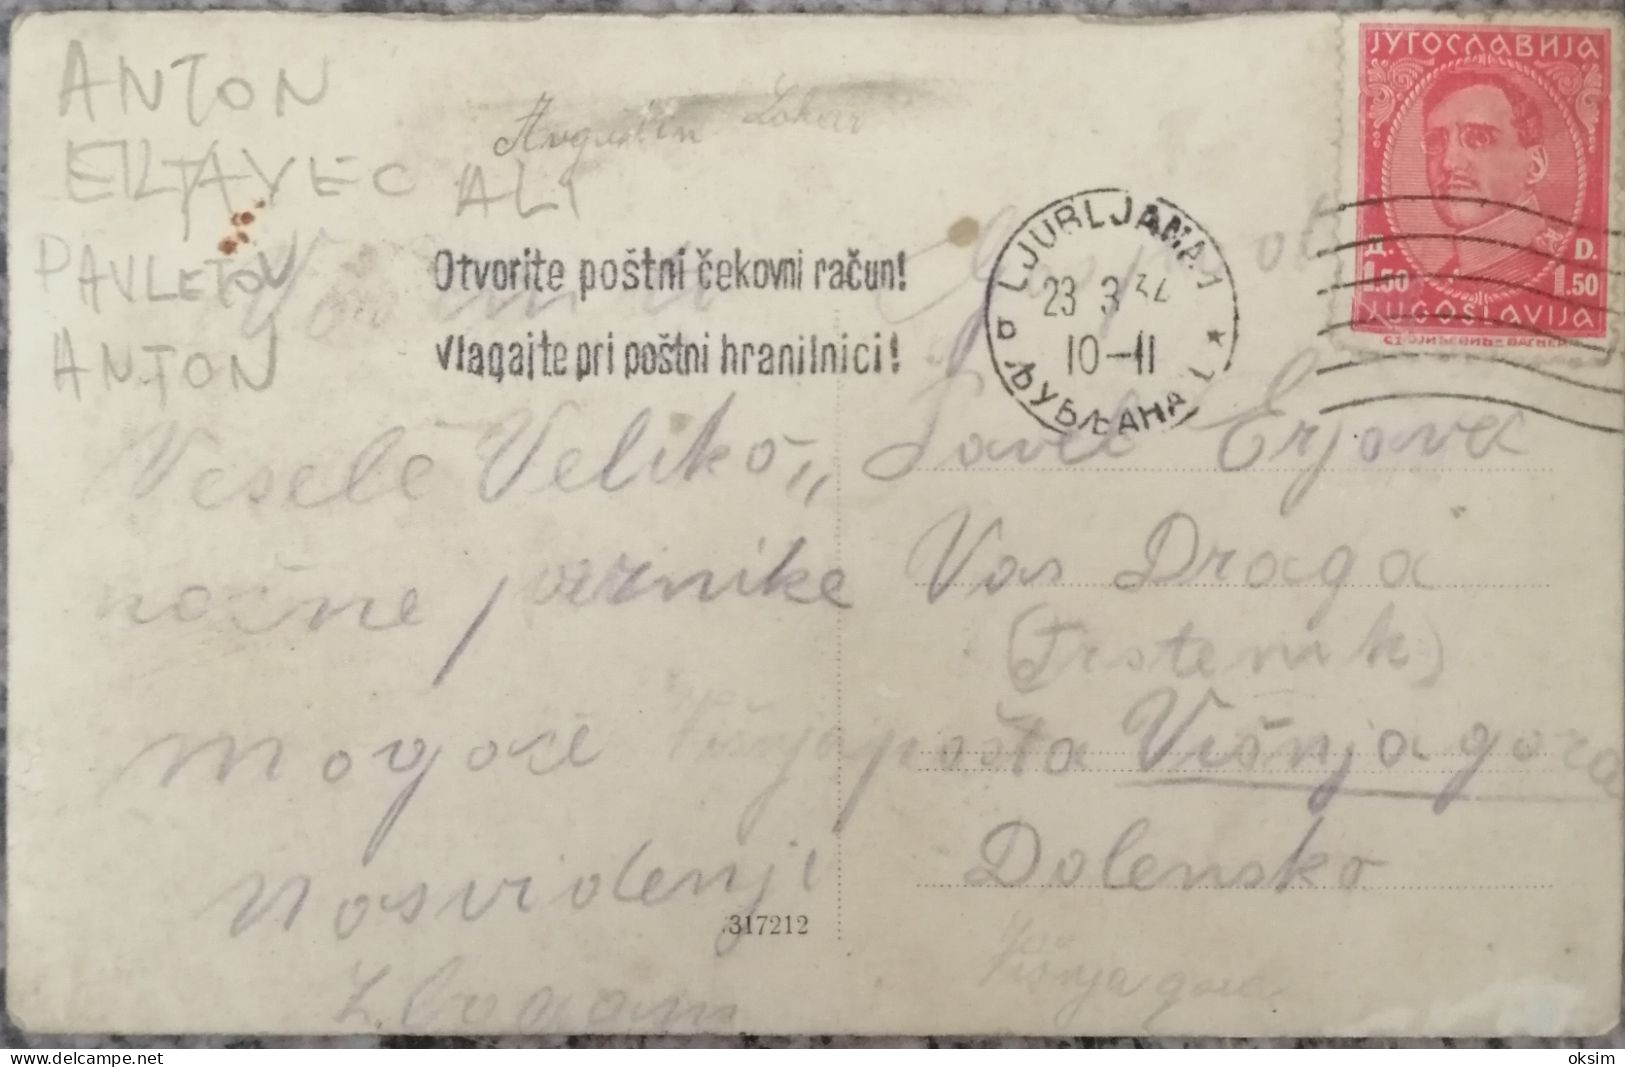 ANTON
Avgustin
ALI
PAVLETOV
ANTON
Otvorite poštni čekovni račun!
Vlagajte pri poštni hranilnici!
LJUBLJANA 1
23 3 34
10-11
ЉУБЉАНА 1
ЈУГОСЛАВИЈА
Д. D.
1.50 1.50
JUGOSLAVIJA
Vesele Veliko„
nočne praznike
mogoče
Nasvidenji
Zbogam
317212
Gospod
Erjavec
Vas Draga
(Trstenik)
pošta Višnja gora
Dolensko
Višnja gora
oksim